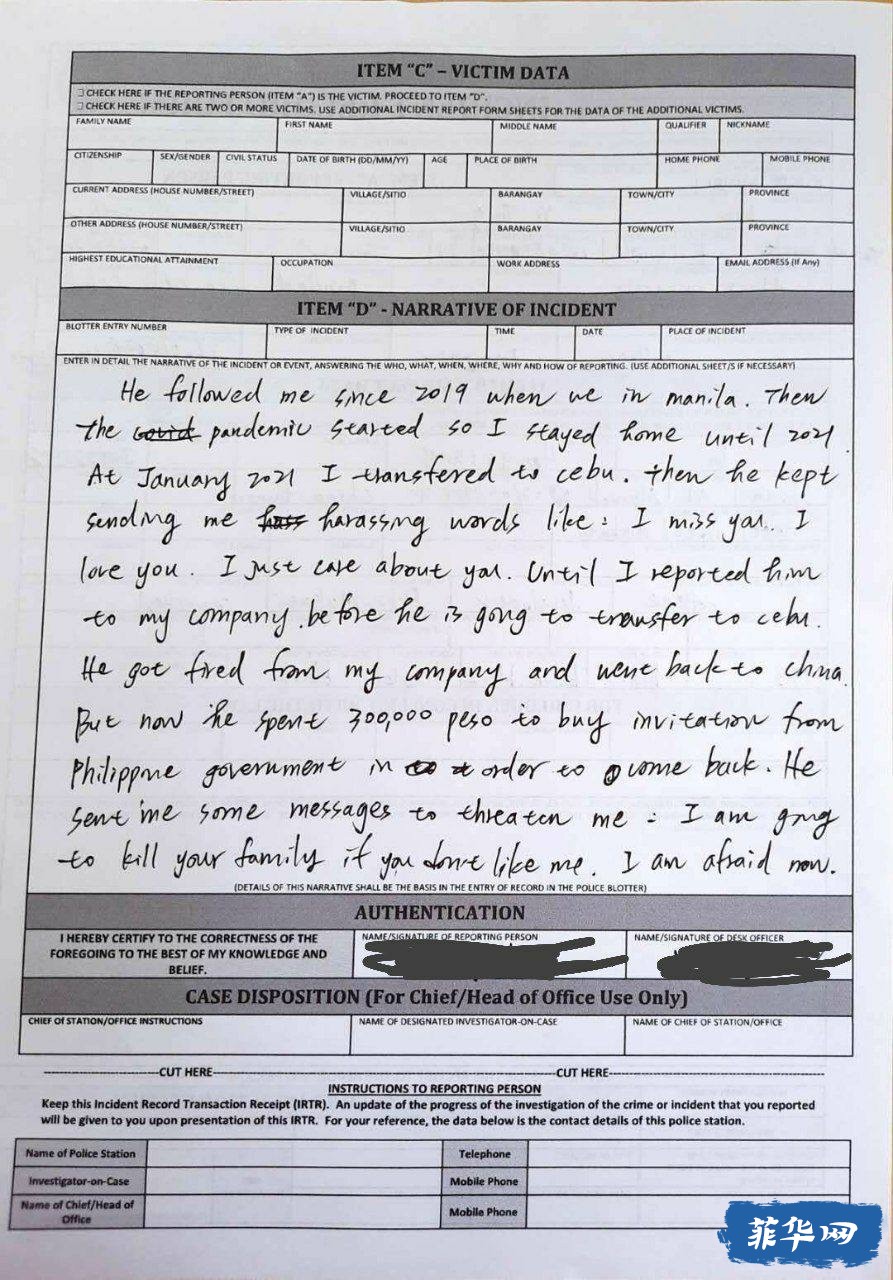 ITEM "C" – VICTIM DATA
☐ CHECK HERE IF THE REPORTING PERSON (ITEM "A") IS THE VICTIM. PROCEED TO ITEM "D".
☐ CHECK HERE IF THERE ARE TWO OR MORE VICTIMS. USE ADDITIONAL INCIDENT REPORT FORM SHEETS FOR THE DATA OF THE ADDITIONAL VICTIMS.
FAMILY NAME FIRST NAME MIDDLE NAME QUALIFIER NICKNAME
CITIZENSHIP SEX/GENDER CIVIL STATUS DATE OF BIRTH (DD/MM/YY) AGE PLACE OF BIRTH HOME PHONE MOBILE PHONE
CURRENT ADDRESS (HOUSE NUMBER/STREET) VILLAGE/SITIO BARANGAY TOWN/CITY PROVINCE
OTHER ADDRESS (HOUSE NUMBER/STREET) VILLAGE/SITIO BARANGAY TOWN/CITY PROVINCE
HIGHEST EDUCATIONAL ATTAINMENT OCCUPATION WORK ADDRESS EMAIL ADDRESS (If Any)
ITEM "D" - NARRATIVE OF INCIDENT
BLOTTER ENTRY NUMBER TYPE OF INCIDENT TIME DATE PLACE OF INCIDENT
ENTER IN DETAIL THE NARRATIVE OF THE INCIDENT OR EVENT, ANSWERING THE WHO, WHAT, WHEN, WHERE, WHY AND HOW OF REPORTING. (USE ADDITIONAL SHEET/S IF NECESSARY)
He followed me since 2019 when we in manila. Then
the covid pandemic started so I stayed home until 2021
At January 2021 I transferred to cebu. then he kept
sending me hass harassing words like: I miss you. I
love you. I just care about you. Until I reported him
to my company. before he is gong to transfer to cebu.
He got fired from my company and went back to china.
But now he spent 300,000 peso to buy invitation from
Philippine government in to order to come back. He
sent me some messages to threaten me: I am gong
to kill your family if you don't like me. I am afraid now.
(DETAILS OF THIS NARRATIVE SHALL BE THE BASIS IN THE ENTRY OF RECORD IN THE POLICE BLOTTER)
AUTHENTICATION
I HEREBY CERTIFY TO THE CORRECTNESS OF THE
FOREGOING TO THE BEST OF MY KNOWLEDGE AND
BELIEF.
NAME/SIGNATURE OF REPORTING PERSON NAME/SIGNATURE OF DESK OFFICER
CASE DISPOSITION (For Chief/Head of Office Use Only)
CHIEF OF STATION/OFFICE INSTRUCTIONS NAME OF DESIGNATED INVESTIGATOR-ON-CASE NAME OF CHIEF OF STATION/OFFICE
CUT HERE CUT HERE
INSTRUCTIONS TO REPORTING PERSON
Keep this Incident Record Transaction Receipt (IRTR). An update of the progress of the investigation of the crime or incident that you reported
will be given to you upon presentation of this IRTR. For your reference, the data below is the contact details of this police station.
Name of Police Station Telephone
Investigator-on-Case Mobile Phone
Name of Chief/Head of
Office Mobile Phone
菲华网